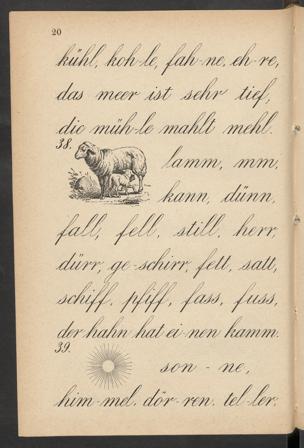 20
kühl, koh-le, fah-ne, eh-re,
das meer ist sehr tief,
die müh-le mahlt mehl.
38.
lamm, mm,
kann, dünn,
fall, fell, still, herr,
dürr, ge-schirr, fett, satt,
schiff, pfiff, fass, fuss,
der hahn hat ei-nen kamm.
39.
son-ne,
him-mel, dör-ren, tel-ler,